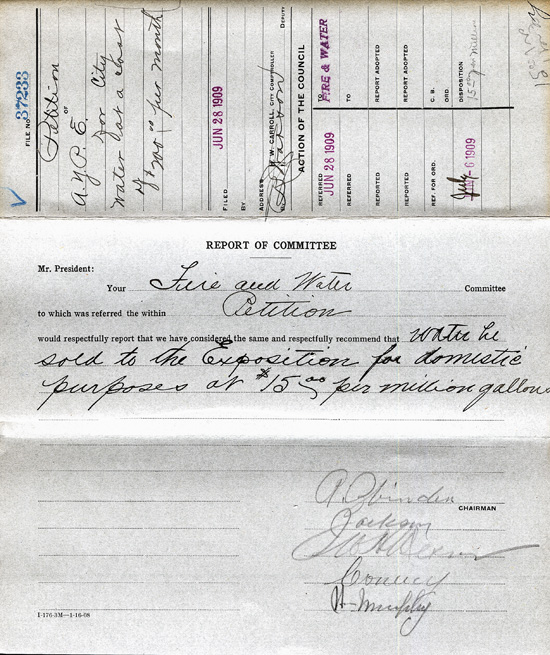 FILE NO. 37233
Petition
OF
A.Y.P.E.
For City
Water at a cost
of $200.00 per month
FILED JUN 28 1909
BY
ADDRESS
H. W. CARROLL, CITY COMPTROLLER
DEPUTY
ACTION OF THE COUNCIL
REFERRED JUN 28 1909 TO FIRE & WATER
REFERRED TO
REPORTED REPORT ADOPTED
REPORTED REPORT ADOPTED
REF FOR ORD. C. B.
July 6 1909 ORD.
DISPOSITION
15.00 per Million
REPORT OF COMMITTEE
Mr. President:
Your Fire and Water Committee
to which was referred the within Petition
would respectfully report that we have considered the same and respectfully recommend that water be
sold to the Exposition for domestic
purposes at $15.00 per million gallons
CHAIRMAN
Jackson
Conway
Murphy
I-176-3M—1-16-08